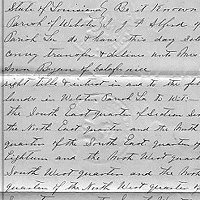 State of Louisiana Be it Known
Parish of Webster I J F Alford
Parish La do & have this day sold
convey transfer & deliver unto Mrs
Bryan of Natafice
right title & interest in and to the fol
landes in Webster Parish La to wit:
The South East quarter of Section Sev
the North East quarter and the North
quarter of the South East quarter of
Eighteen and the North West quarter
South West quarter and the North
quarter of the North West quarter of